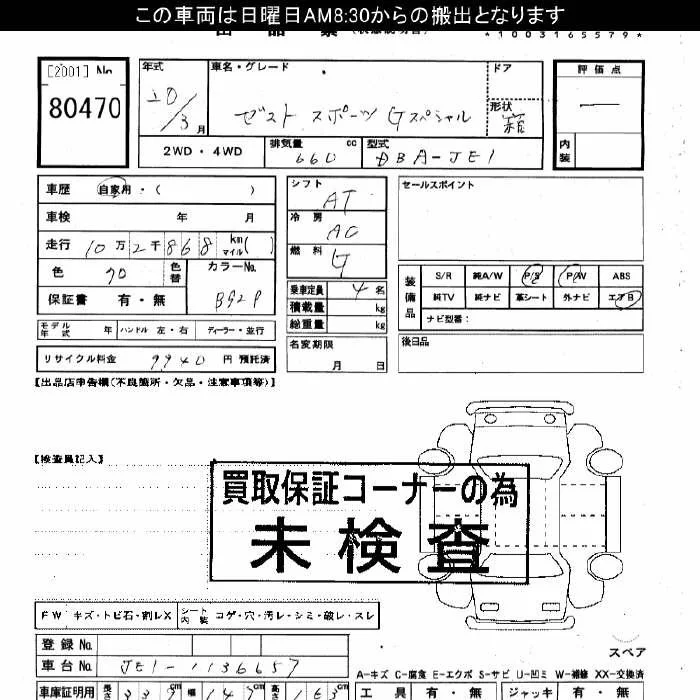 この車両は日曜日AM8:30からの搬出となります
*1003165579*
[2001] No
80470
年式
20/3月
車名・グレード
ゼスト スポーツ Gスペシャル
ドア
形状
箱
評価点
―
内装
2WD・4WD
排気量
660 cc
型式
DBA-JE1
車歴 自家用・( )
車検 年 月
走行 10万2千868 km マイル( )
色 クロ 色替
カラーNo.
B92P
保証書 有・無
モデル年式 年 ハンドル 左・右 ディーラー・並行
リサイクル料金 9940 円 預託済
シフト
AT
冷房
AC
燃料
G
乗車定員 4名
積載量 kg
総重量 kg
名変期限
月 日
セールスポイント
装備品
S/R 純A/W P/S P/W ABS
純TV 純ナビ 革シート 外ナビ エアB
ナビ型番:
後日品
【出品店申告欄(不良箇所・欠品・注意事項等)】
【検査員記入】
買取保証コーナーの為
未検査
FW キズ・トビ石・割レX
シート内装 コゲ・穴・汚レ・シミ・破レ・スレ
登録No.
車台No. JE1-1136657
スペア
A-キズ C-腐食 E-エクボ S-サビ U-凹ミ W-補修 XX-交換済
車庫証明用 長さ 339cm 幅 147cm 高さ 163cm
工具 有・無 ジャッキ 有・無